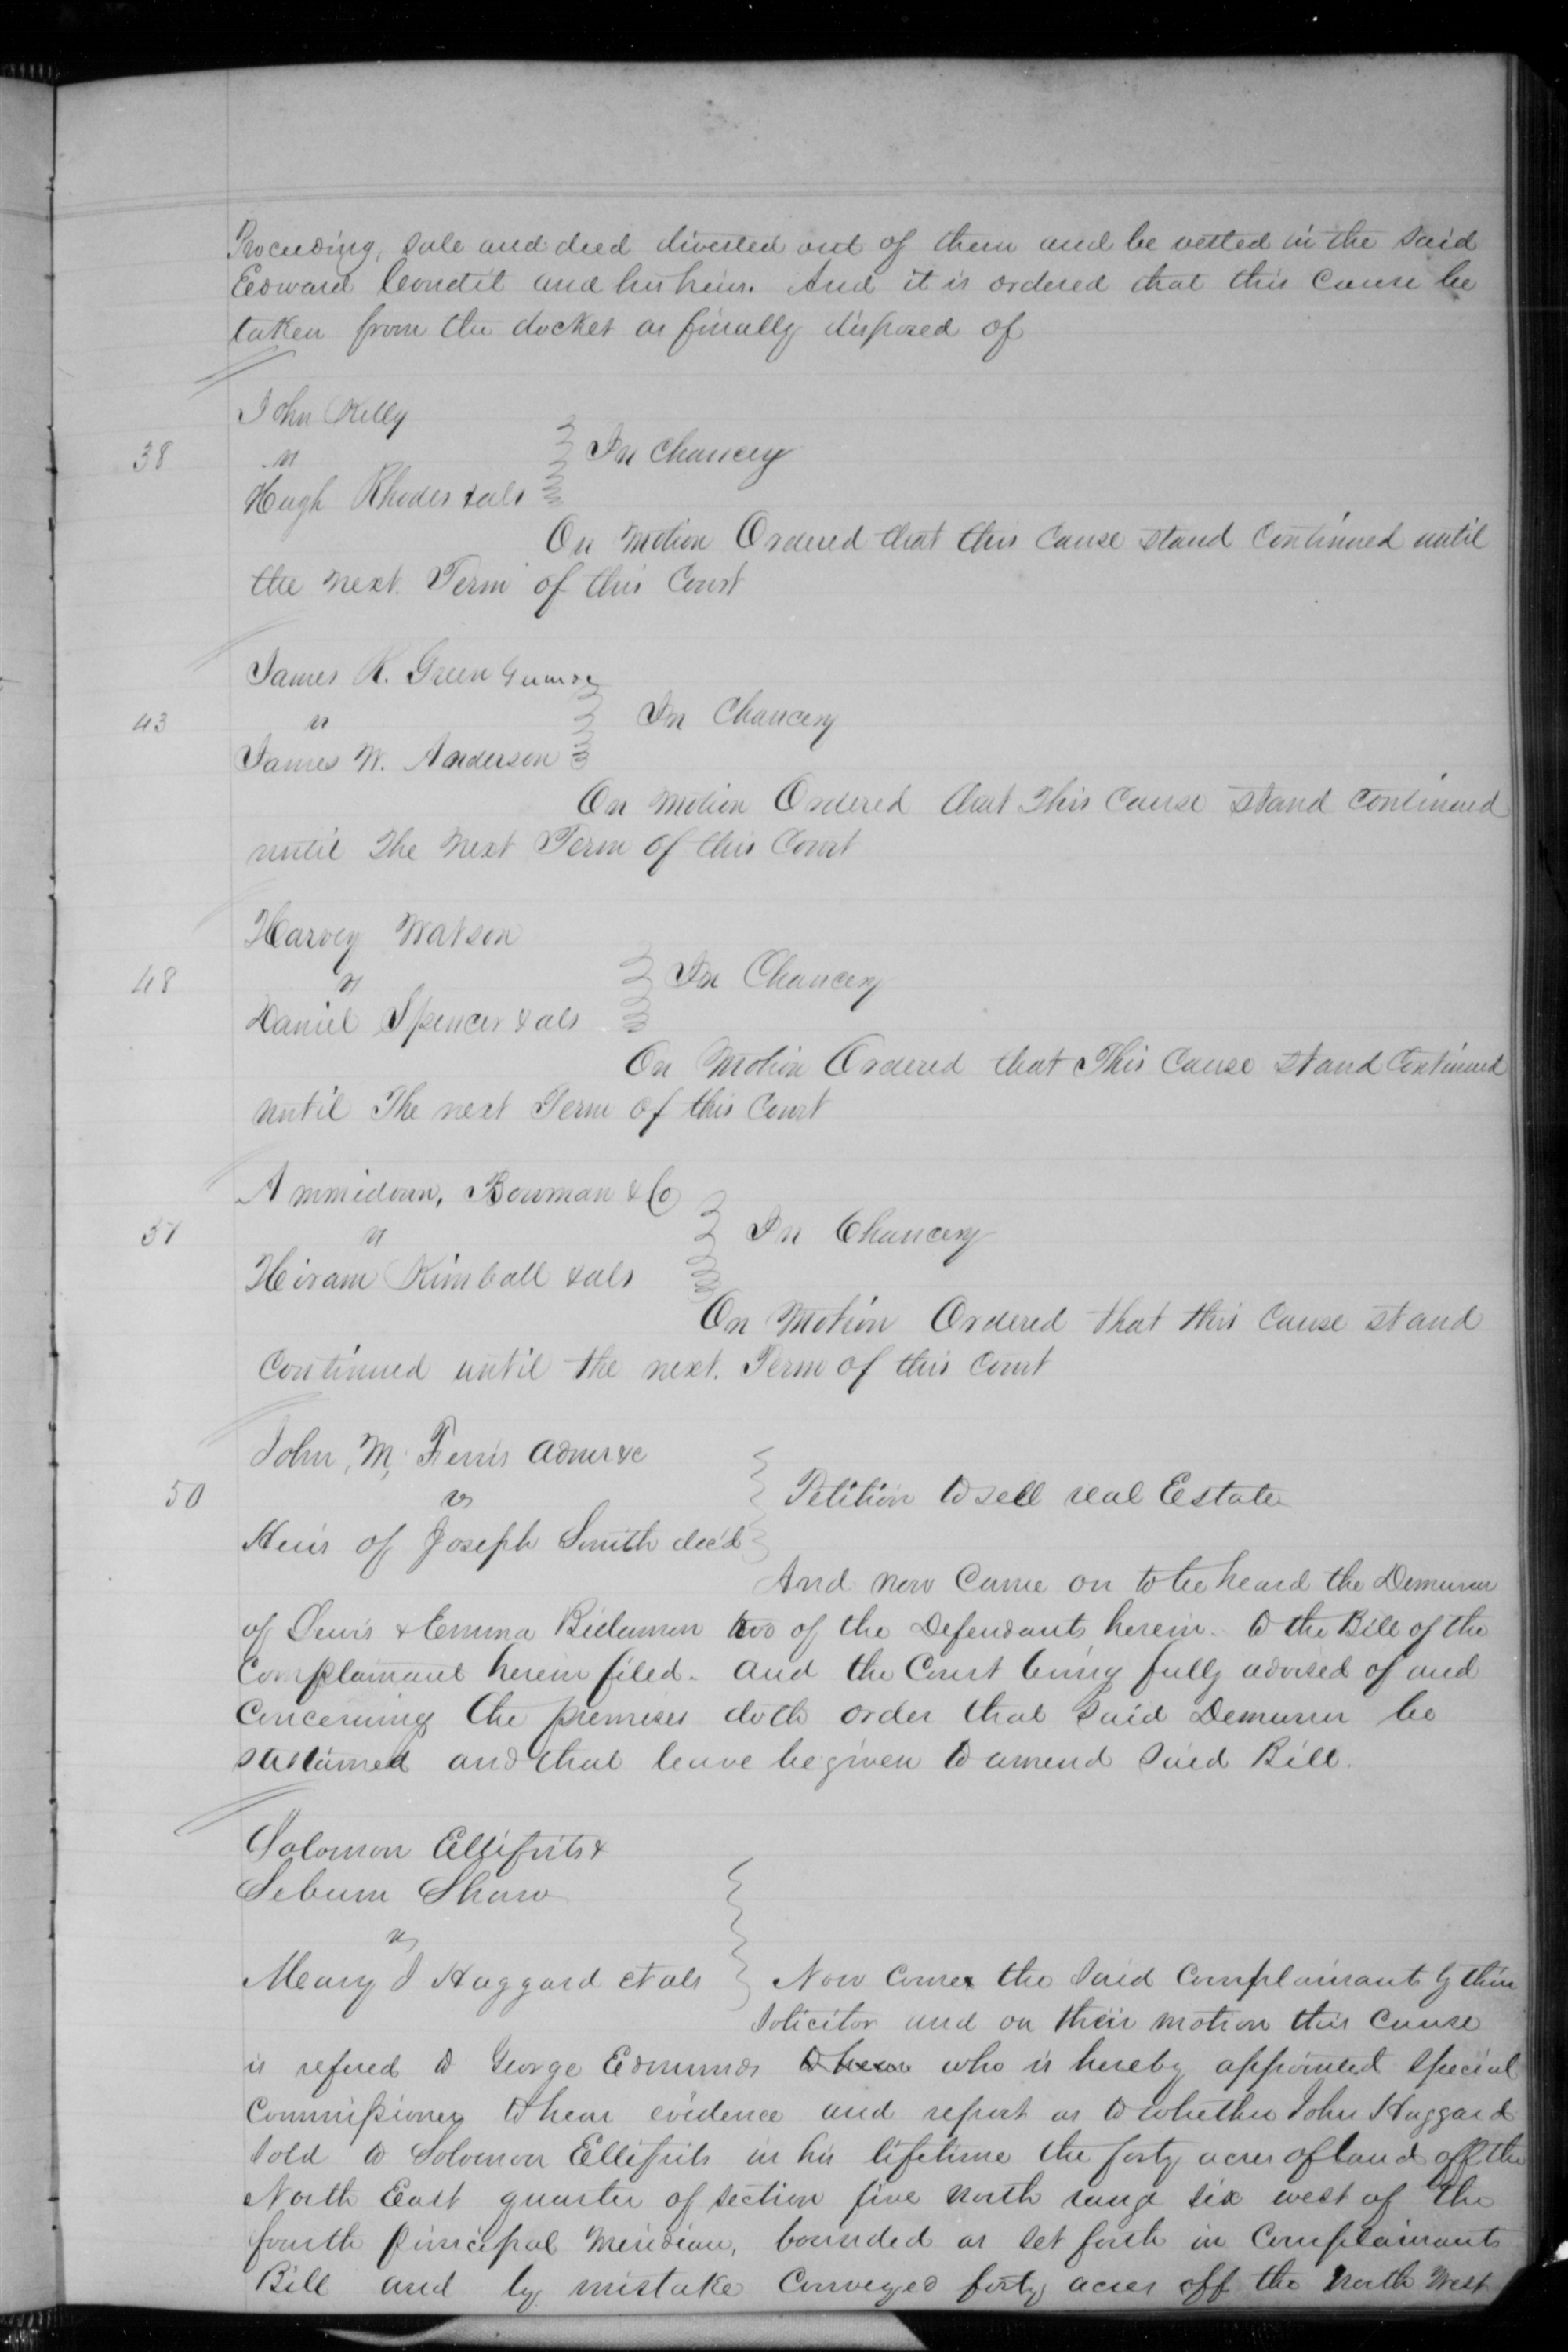 Proceeding, sale and deed divested out of them and be vested in the said
Edward Condit and his heirs. And it is ordered that this cause be
taken from the docket as finally disposed of
John Kelly
38 vs In Chancery
Hugh Rhodes & als
On Motion Ordered that this Cause stand Continued until
the next Term of this Court
James R. Green
43 vs In Chancery
James W. Anderson
On Motion Ordered that this Cause stand Continued
until the next Term of this Court
Harvey Watson
48 vs In Chancery
Daniel Spencer & als
On Motion Ordered that This Cause stand Continued
until The next Term of this Court
Ammidown, Bowman & Co
51 vs In Chancery
Hiram Kimball & als
On Motion Ordered that this Cause stand
Continued until the next. Term of this Court
John, M, Ferris Admr &c
50 vs Petition to sell real Estate
Heirs of Joseph Smith dec'd
And now Came on to be heard the Demurrer
of Lewis & Emma Bidamon two of the Defendants herein. to the Bill of the
Complainant herein filed. and the Court being fully advised of and
Concerning the premises doth order that said Demurrer be
sustained and that leave be given to amend said Bill.
Solomon Ellifrits &
Seburn Shaw
vs
Mary J Haggard et als Now Comes the said Complainants by their
Solicitor and on their motion this Cause
is refered to George Edmunds to hear who is hereby appointed special
Commissioner to hear evidence and report as to whether John Haggard
sold to Solomon Ellifrits in his lifetime the forty acres of land off the
North East quarter of section five north range six west of the
fourth Principal Meridian, bounded as set forth in Complainants
Bill and by mistake Conveyed forty acres off the North West